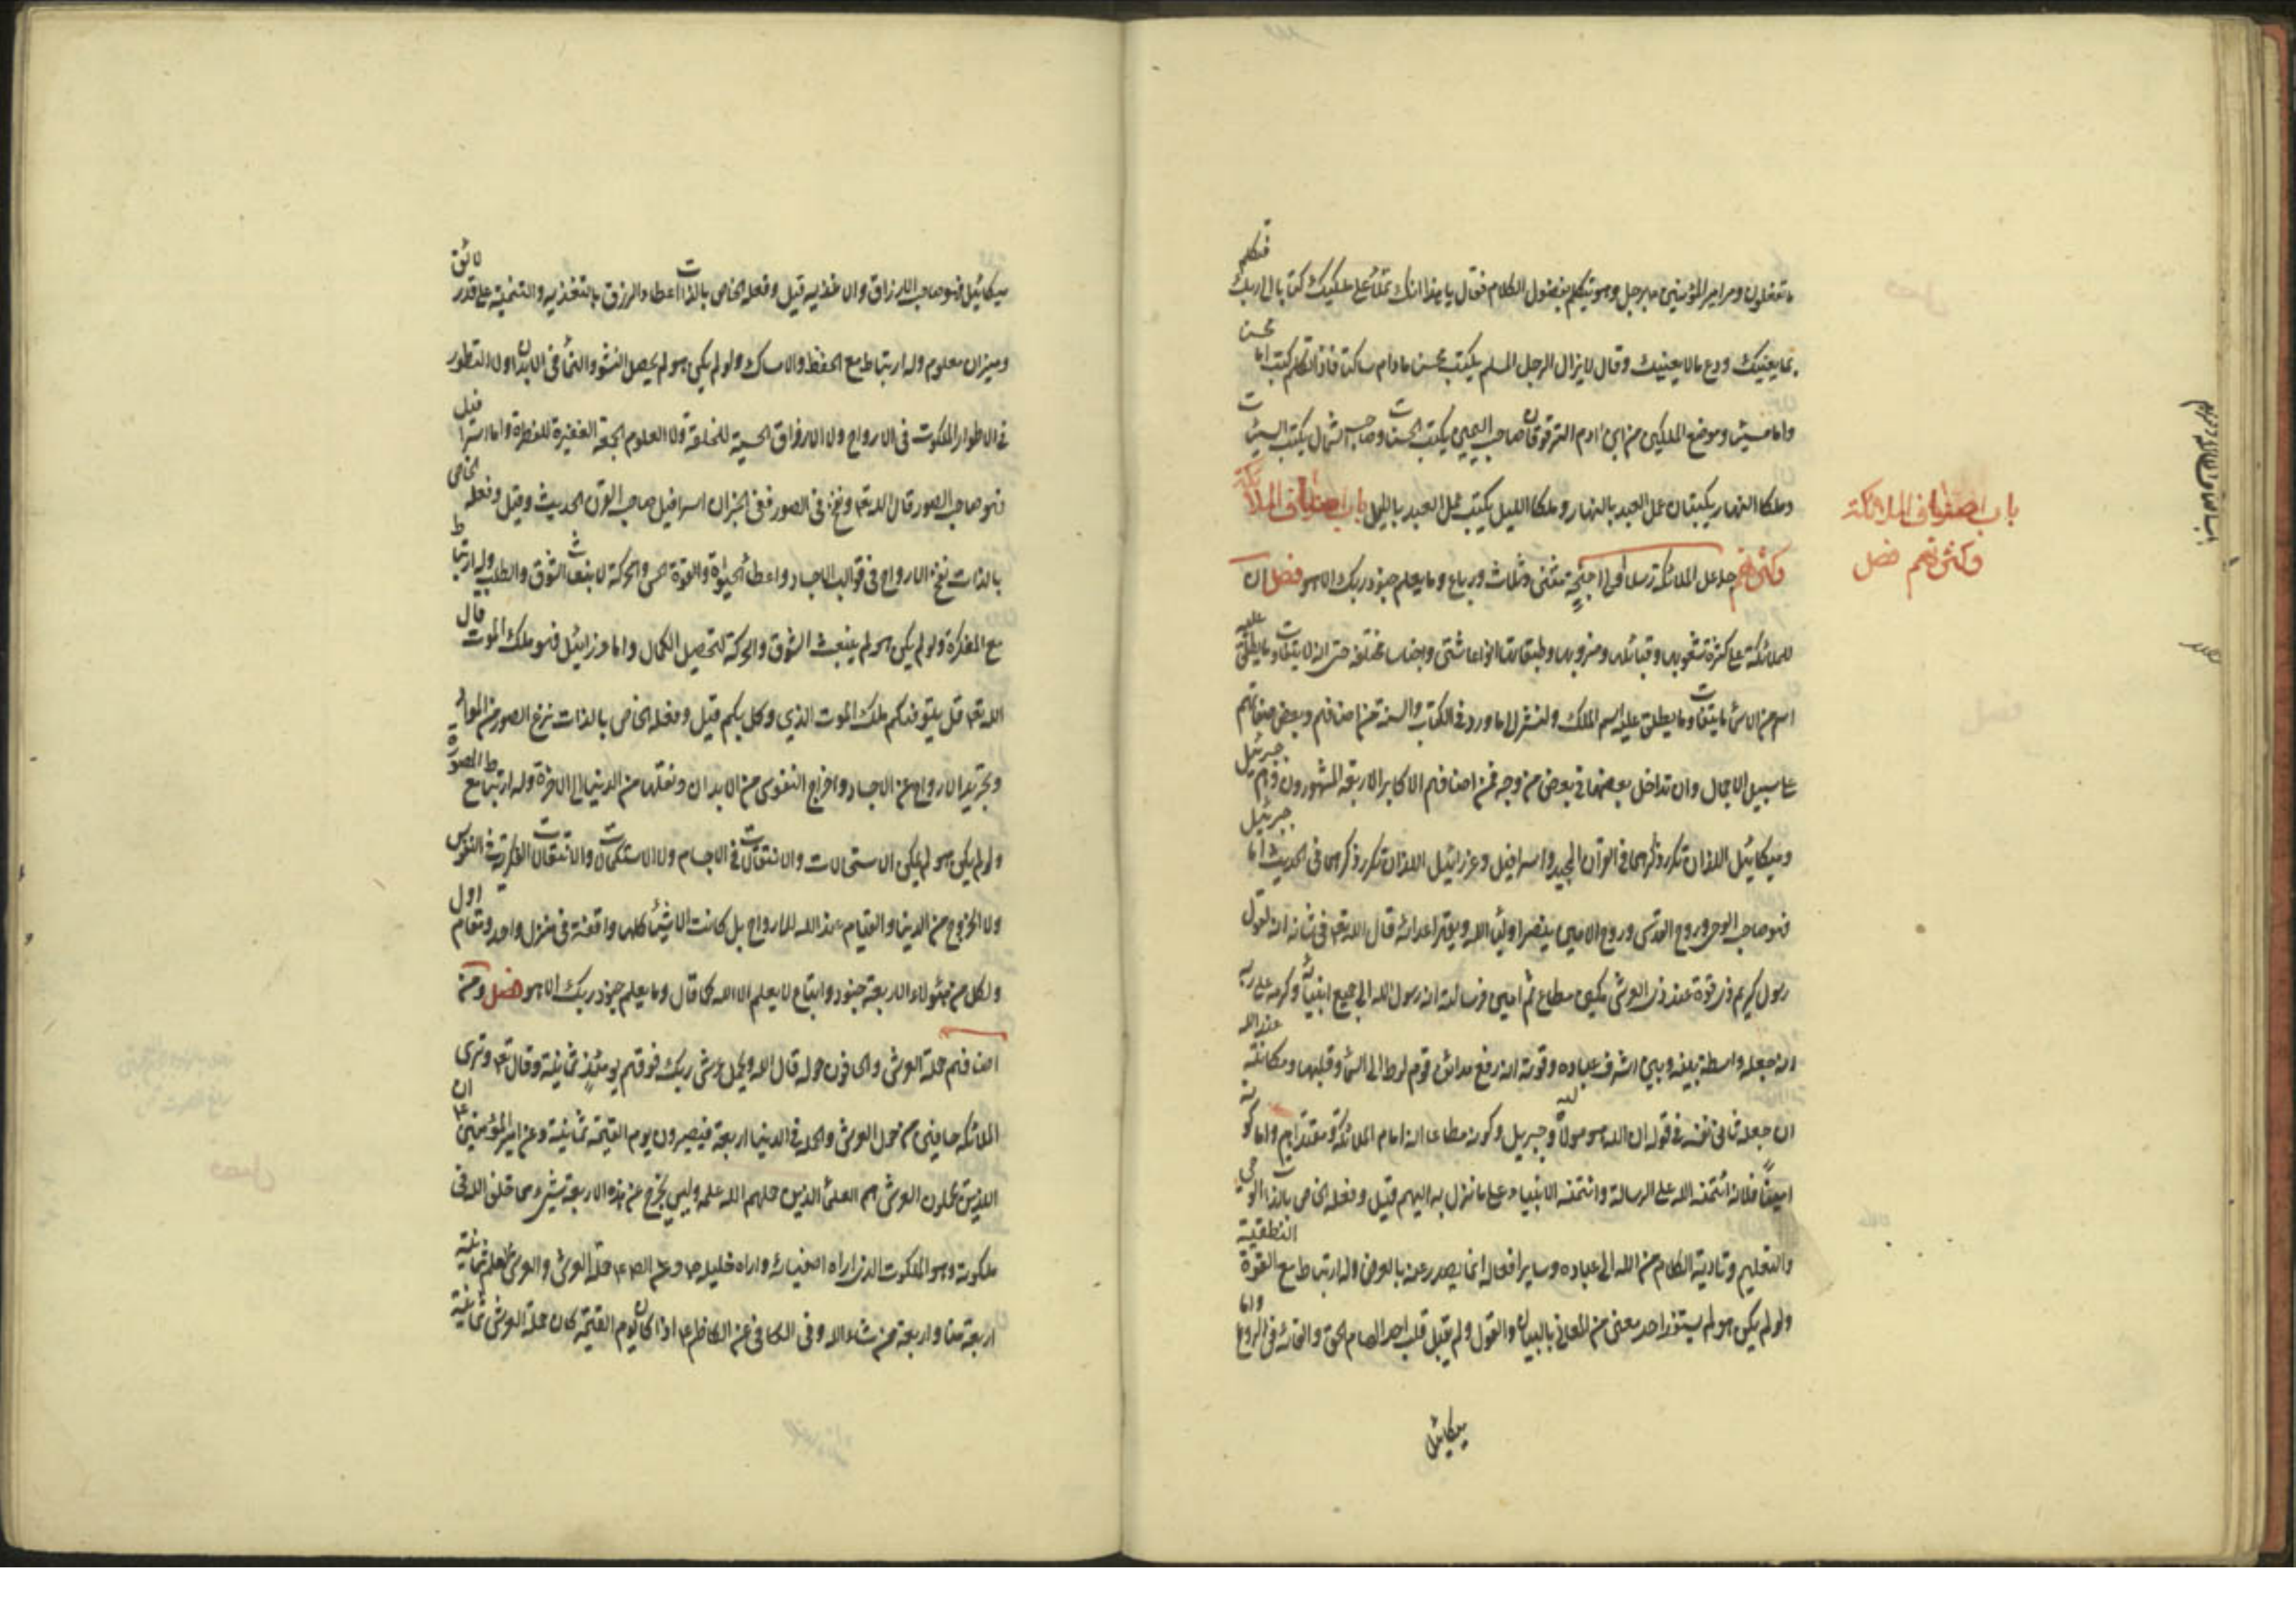 ما تفعلون ومر امير المؤمنين ع برجل وهو يتكلم بفضول الكلام فقال يا هذا انك تملئ على ملكيك كتابا الى ربك فتكلم
بما يعنيك ودع ما لا يعنيك وقال لا يزال الرجل المسلم يكتب محسنا ما دام ساكتا فاذا تكلم كتب اما محسنا
واما مسيئا وموضع الملكين من ابن ادم الترقوتان صاحب اليمين يكتب الحسنات وصاحب الشمال يكتب السيئات
وملكا النهار يكتبان عمل العبد بالنهار وملكا الليل يكتب عمل العبد بالليل باب اصناف الملائكة
وكثرتهم جاعل الملائكة رسلا اولي اجنحة مثنى وثلاث ورباع وما يعلم جنود ربك الا هو فصل ان
للملائكة على كثرة شعوبها وقبائلها وضروبها وطبقاتها انواعا شتى واجناسا مختلفة حتى انه لا يتفاوت ما يطلق عليه
اسم من الاسماء ما يتفاوت ما يطلق عليه اسم الملك ولنشر الى ما ورد في الكتاب والسنة من اصنافهم وبعض صفاتهم
على سبيل الاجمال وان تداخل بعضها في بعض من وجه فمن اصنافهم الاكابر الاربعة المشهورون وهم جبرئيل
وميكائيل اللذان تكرر ذكرهما في القران المجيد واسرافيل وعزرائيل اللذان تكرر ذكرهما في الحديث اما جبرئيل
فهو صاحب الوحي وروح القدس وروح الامين ينصر اولياء الله ويقهر اعدائه قال الله تع في شانه انه لقول
رسول كريم ذي قوة عند ذي العرش مكين مطاع ثم امين فرسالته انه رسول الله الى جميع انبيائه وكرمه على ربه
انه جعله واسطة بينه وبين اشرف عباده وقوته انه رفع مدائن قوم لوط الى السماء وقلبها ومكانته عند الله
ان جعله ثاني نفسه في قوله ان الله هو موليه وجبريل وكونه مطاعا انه امام الملائكة ومقتداهم واما كونه
امينا فلانه ائتمنه الله على الرسالة وائتمنه الانبياء على ما نزل به اليهم قيل وفعله الخاص بالذات الوحي
والتعليم وتادية الكلام من الله الى عباده وساير افعاله انما يصدر عنه بالعرض وله ارتباط مع القوة النطقية
ولو لم يكن هو لم يستفد احد معنى من المعاني بالبيان والقول ولم يقبل قلب احد الهام الحق والقائه في الروع واما
ميكائيل
باب اصناف الملائكة
وكثرتهم فصل
ميكائيل فهو صاحب الارزاق والاغذية قيل وفعله الخاص بالذات اعطاء الرزق بالتغذية والتنمية على قدر لائق
وميزان معلوم وله ارتباط مع الحفظ والامساك ولو لم يكن هو لم يحصل النشو والنماء في الابدان ولا التطور
في الاطوار الملكوت في الارواح ولا الارزاق الحسية للخلقة ولا العلوم الجمة الغفيرة للفطرة واما اسرافيل
فهو صاحب الصور قال الله تع ونفخ في الصور ففي الخبر ان اسرافيل صاحب القرن الحديث وقيل وفعله الخاص
بالذات نفخ الارواح في قوالب الاجساد واعطاء الحيوة والقوة الحس والحركة لانبعاث الشوق والطلب وله ارتباط
مع المفكرة ولو لم يكن هو لم ينبعث الشوق والحركة لتحصيل الكمال واما عزرائيل فهو ملك الموت قال
الله تع قل يتوفيكم ملك الموت الذي وكل بكم قيل وفعله الخاص بالذات نزع الصور من المواد
وتجريد الارواح عن الاجساد واخراج النفوس من الابدان ونقلها من الدنيا الى الاخرة وله ارتباط مع المصورة
ولو لم يكن هو لم يكن الاستحالات والانتقالات في الاجسام ولا الاستكمالات والانتقالات الفكرية في النفوس
ولا الخروج من الدنيا والقيام عند الله للارواح بل كانت الاشياء كلها واقفة في منزل واحد ومقام اول
ولكل من هؤلاء الاربعة جنود واتباع لا يعلم الا الله كما قال وما يعلم جنود ربك الا هو فصل ومن
اصنافهم حملة العرش والحافون حوله قال الله ويحمل عرش ربك فوقهم يومئذ ثمانية وقال تع وترى
الملائكة حافين من حول العرش والحملة في الدنيا اربعة فيصيرون يوم القيمة ثمانية وعن امير المؤمنين ع ان
الذين يحملون العرش هم العلماء الذين حملهم الله علمه وليس يخرج عن هذه الاربعة شيء مما خلق الله في
ملكوته وهو الملكوت الذي اراه اصفيائه واراه خليله ص وعن الص ع حملة العرش والعرش العلم ثمانية
اربعة منا واربعة ممن شاء الله وفي الكافي عن الكاظم ع اذا كان يوم القيمة كان حملة العرش ثمانية